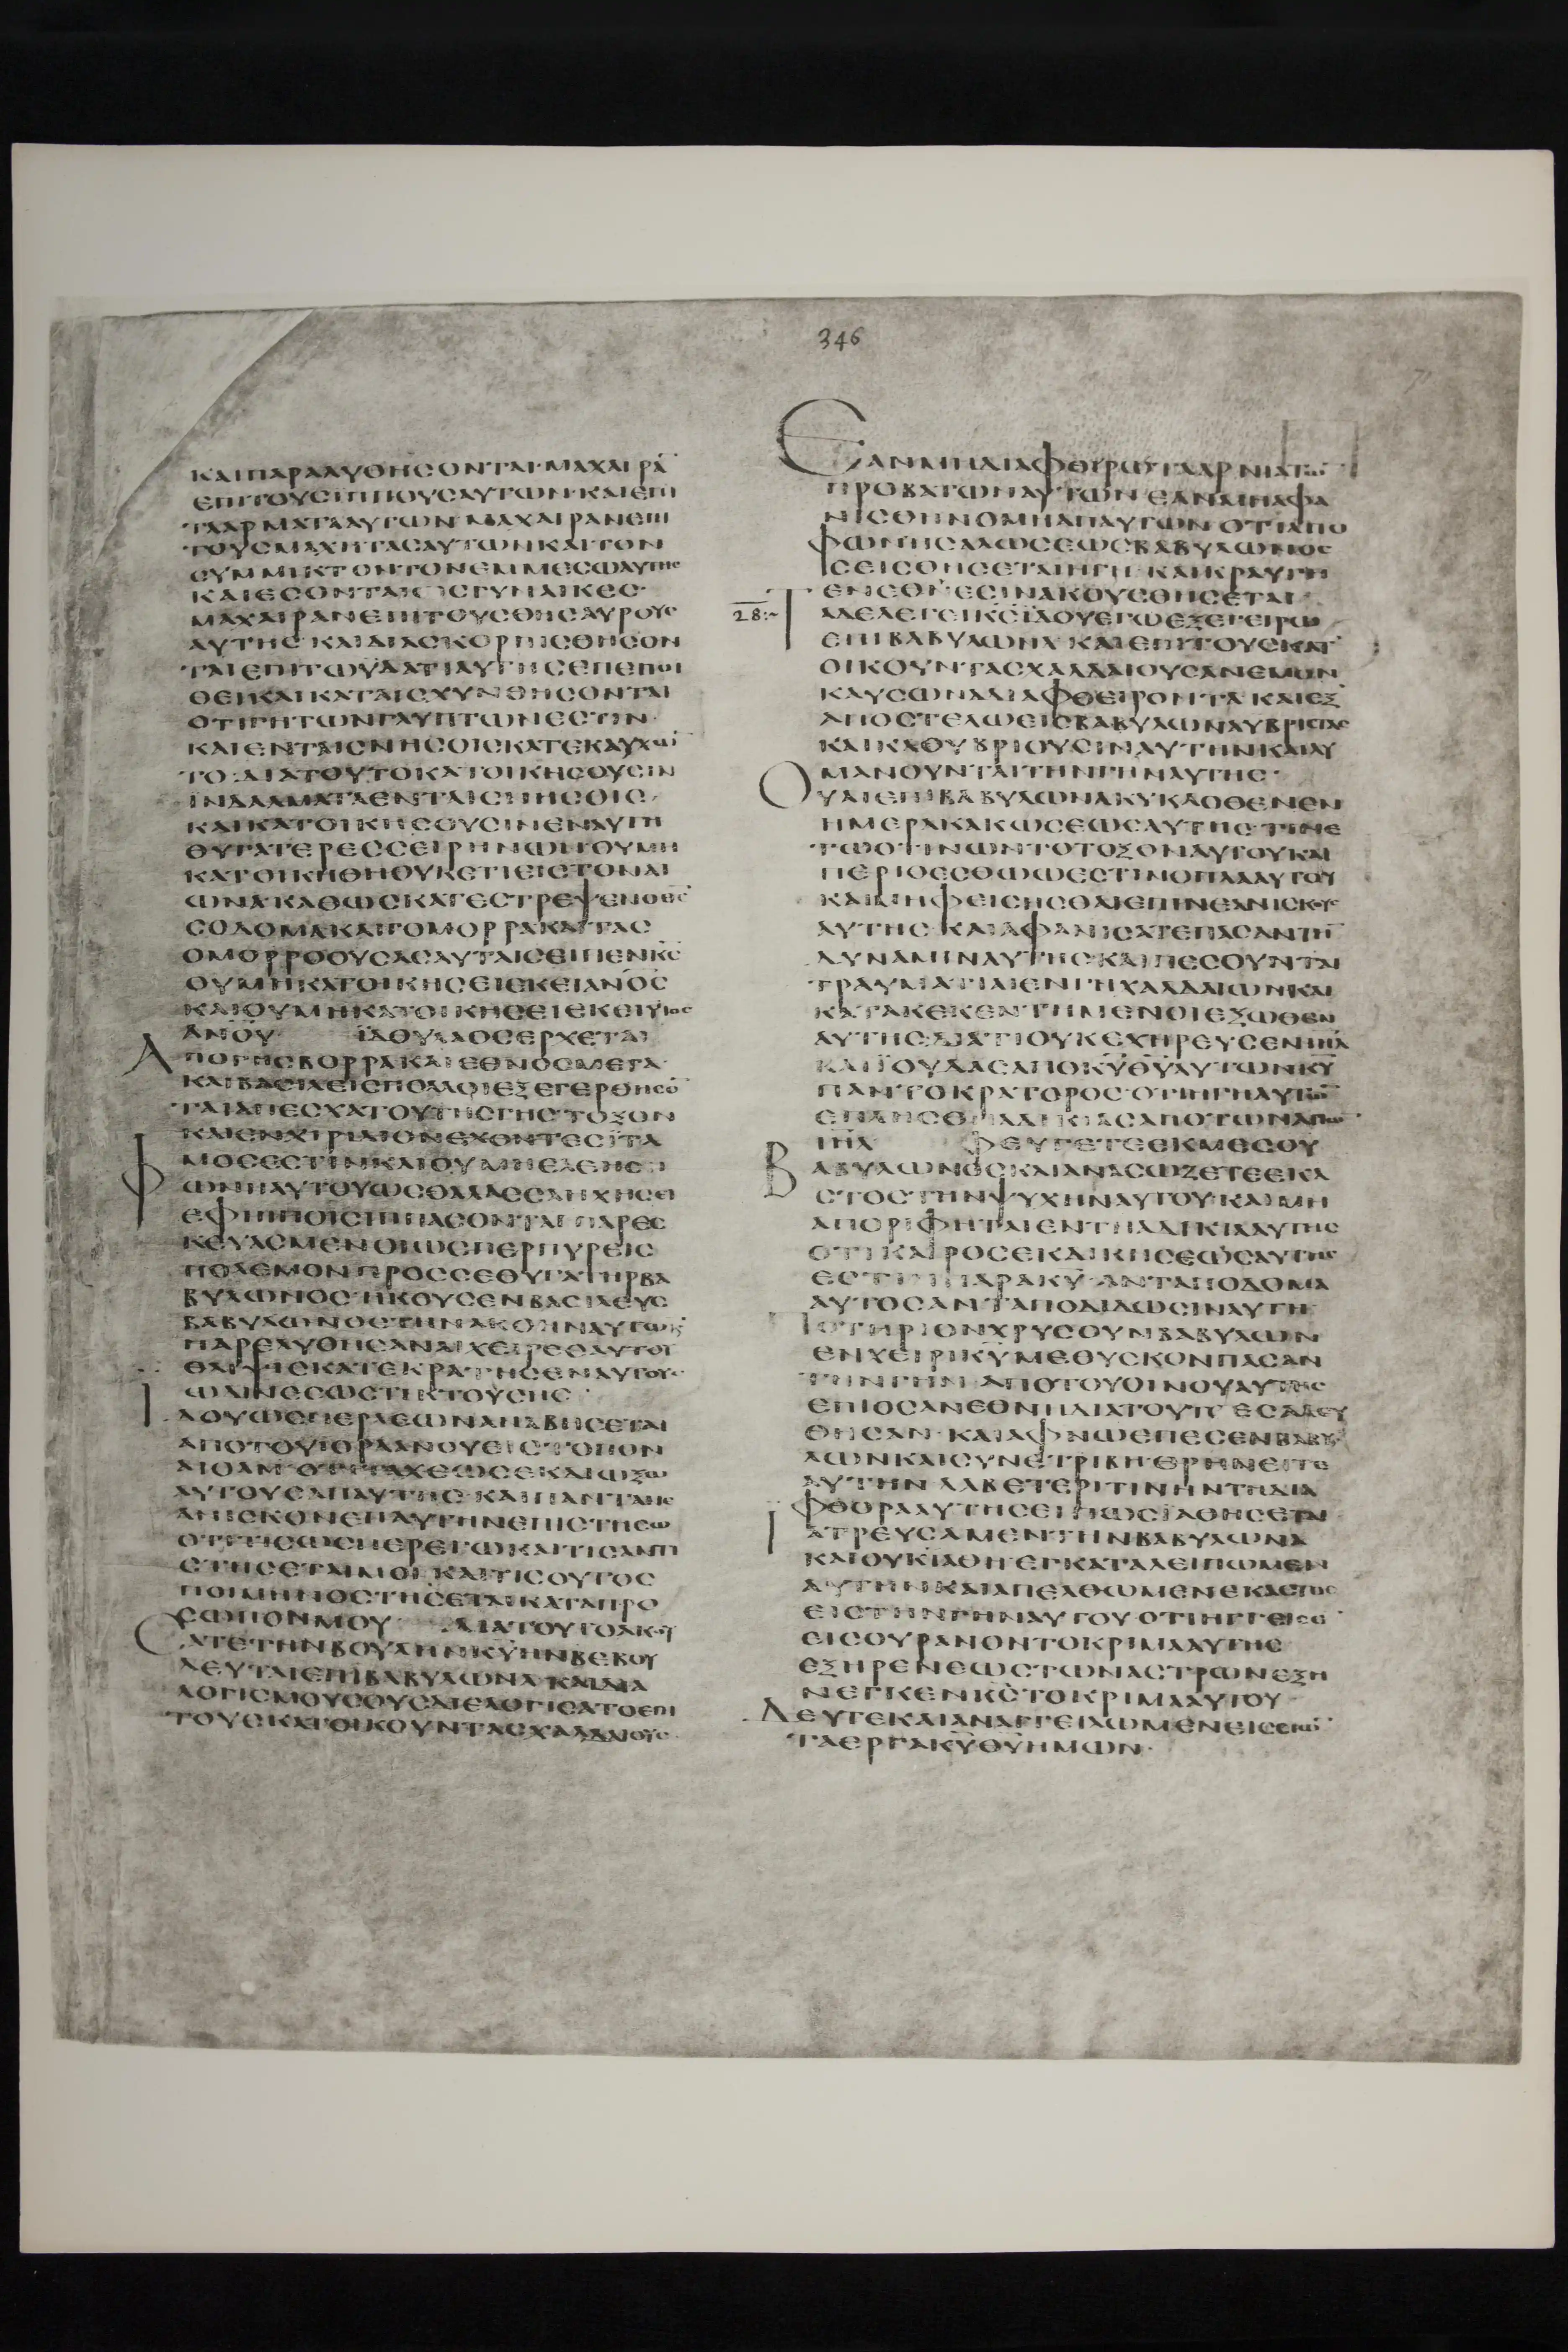 346
ΚΑΙΠΑΡΑΛΥΘΗΣΟΝΤΑΙ·ΜΑΧΑΙΡΑ̅
ΕΠΙΤΟΥϹΙΠΠΟΥϹΑΥΤΩΝ·ΚΑΙΕΠΙ
ΤΑΑΡΜΑΤΑΑΥΤΩΝ ΜΑΧΑΙΡΑΝΕΠΙ
ΤΟΥϹΜΑΧΗΤΑϹΑΥΤΩΝΚΑΙΤΟΝ
ϹΥΜΜΙΚΤΟΝΤΟΝΕΜΜΕϹΩΑΥΤΗϹ
ΚΑΙΕϹΟΝΤΑΙΩϹΓΥΝΑΙΚΕϹ·
ΜΑΧΑΙΡΑΝΕΠΙΤΟΥϹΘΗϹΑΥΡΟΥϹ
ΑΥΤΗϹ·ΚΑΙΔΙΑϹΚΟΡΠΙϹΘΗϹΟΝ
ΤΑΙΕΠΙΤΩΫΔΑΤΙΑΥΤΗϹΕΠΕΠΟΙ
ΘΕΙΚΑΙΚΑΤΑΙϹΧΥΝΘΗϹΟΝΤΑΙ
ΟΤΙΓΗΤΩΝΓΛΥΠΤΩΝΕϹΤΙΝ·
ΚΑΙΕΝΤΑΙϹΝΗϹΟΙϹΚΑΤΕΚΑΥΧΩ̅
ΤΟ·ΔΙΑΤΟΥΤΟΚΑΤΟΙΚΗϹΟΥϹΙΝ
ΙΝΔΑΛΜΑΤΑΕΝΤΑΙϹΝΗϹΟΙϹ·
ΚΑΙΚΑΤΟΙΚΗϹΟΥϹΙΝΕΝΑΥΤΗ
ΘΥΓΑΤΕΡΕϹϹΕΙΡΗΝΩΝΟΥΜΗ
ΚΑΤΟΙΚΗΘΗΟΥΚΕΤΙΕΙϹΤΟΝΑΙ
ΩΝΑΚΑΘΩϹΚΑΤΕϹΤΡΕΨΕΝΟΘϹ̅
ϹΟΔΟΜΑΚΑΙΓΟΜΟΡΡΑΚΑΙΤΑϹ
ΟΜΟΡΡΟΟΥϹΑϹΑΥΤΑΙϹΕΙΠΕΝΚ̅Ϲ̅
ΟΥΜΗΚΑΤΟΙΚΗϹΕΙΕΚΕΙΑΝΟ̅Ϲ̅
ΚΑΙΟΥΜΗΚΑΤΟΙΚΗϹΕΙΕΚΕΙΥΙΟϹ
ΑΝΟΥ̅ ΪΔΟΥΛΑΟϹΕΡΧΕΤΑΙ
ΑΠΟΓΗϹΒΟΡΡΑΚΑΙΕΘΝΟϹΜΕΓΑ·
ΚΑΙΒΑϹΙΛΕΙϹΠΟΛΛΟΙΕΞΕΓΕΡΘΗϹΟ̅
ΤΑΙΑΠΕϹΧΑΤΟΥΤΗϹΓΗϹ·ΤΟΞΟΝ
ΚΑΙΕΝΧΙΡΙΔΙΟΝΕΧΟΝΤΕϹΪΤΑ
ΜΟϹΕϹΤΙΝΚΑΙΟΥΜΗΕΛΕΗϹΗ
ΦΩΝΗΑΥΤΟΥΩϹΘΑΛΑϹϹΑΗΧΗϹΕΙ
ΕΦΙΠΠΟΙϹΙΠΠΑϹΟΝΤΑΙ ΠΑΡΕϹ
ΚΕΥΑϹΜΕΝΟΙΩϹΠΕΡΠΥΡΕΙϹ
ΠΟΛΕΜΟΝΠΡΟϹϹΕΘΥΓΑΤΗΡΒΑ
ΒΥΛΩΝΟϹ·ΗΚΟΥϹΕΝΒΑϹΙΛΕΥϹ
ΒΑΒΥΛΩΝΟϹΤΗΝΑΚΟΗΝΑΥΤΩΝ
ΠΑΡΕΛΥΘΗϹΑΝΑΙΧΕΙΡΕϹΑΥΤΟΥ
ΘΛΙΨΙϹΚΑΤΕΚΡΑΤΗϹΕΝΑΥΤΟΥ·
ΩΔΙΝΕϹΩϹΤΙΚΤΟΥϹΗϹ·
ΙΔΟΥΩϹΠΕΡΛΕΩΝΑΝΑΒΗϹΕΤΑΙ
ΑΠΟΤΟΥΙΟΡΔΑΝΟΥΕΙϹΤΟΠΟΝ
ΑΙΘΑΜ·ΟΤΙΤΑΧΕΩϹΕΚΔΙΩΞΩ
ΑΥΤΟΥϹΑΠΑΥΤΗϹ·ΚΑΙΠΑΝΤΑΝΕ
ΑΝΙϹΚΟΝΕΠΑΥΤΗΝΕΠΙϹΤΗϹΩ
ΟΤΙΤΙϹΩϹΠΕΡΕΓΩΚΑΙΤΙϹΑΝΤΙ
ϹΤΗϹΕΤΑΙΜΟΙ·ΚΑΙΤΙϹΟΥΤΟϹ
ΠΟΙΜΗΝΟϹΤΗϹΕΤΑΙΚΑΤΑΠΡΟ
ϹΩΠΟΝΜΟΥ ΔΙΑΤΟΥΤΟΑΚΟΥ
ϹΑΤΕΤΗΝΒΟΥΛΗΝΚΥ̅ΗΝΒΕΒΟΥ
ΛΕΥΤΑΙΕΠΙΒΑΒΥΛΩΝΑ·ΚΑΙΔΙΑ
ΛΟΓΙϹΜΟΥϹΟΥϹΔΙΕΛΟΓΙϹΑΤΟΕΠΙ
ΤΟΥϹΚΑΤΟΙΚΟΥΝΤΑϹΧΑΛΔΑΙΟΥϹ
ΕΑΝΜΗΔΙΑΦΘΕΙΡΩΤΑΑΡΝΙΑΤΩ̅
ΠΡΟΒΑΤΩΝΑΥΤΩΝ·ΕΑΝΜΗΑΦΑ
ΝΙϹΘΗΝΟΜΗΑΠΑΥΤΩΝ·ΟΤΙΑΠΟ
ΦΩΝΗϹΑΛΩϹΕΩϹΒΑΒΥΛΩΝΟϹ
ϹΕΙϹΘΗϹΕΤΑΙΗΓΗ·ΚΑΙΚΡΑΥΓΗ
ΕΝΕΘΝΕϹΙΝΑΚΟΥϹΘΗϹΕΤΑΙ·
28:~ ΤΑΔΕΛΕΓΕΙΚ̅Ϲ̅ΪΔΟΥΕΓΩΕΞΕΓΕΙΡΩ
ΕΠΙΒΑΒΥΛΩΝΑ·ΚΑΙΕΠΙΤΟΥϹΚΑΤ
ΟΙΚΟΥΝΤΑϹΧΑΛΔΑΙΟΥϹΑΝΕΜΟΝ
ΚΑΥϹΩΝΑΔΙΑΦΘΕΙΡΟΝΤΑ·ΚΑΙΕΞ
ΑΠΟϹΤΕΛΩΕΙϹΒΑΒΥΛΩΝΑΥΒΡΙϹΤΑϹ
ΚΑΙΚΑΘΥΒΡΙΟΥϹΙΝΑΥΤΗΝΚΑΙΛΥ
ΜΑΝΟΥΝΤΑΙΤΗΝΓΗΝΑΥΤΗϹ·
ΟΥΑΙΕΠΙΒΑΒΥΛΩΝΑΚΥΚΛΟΘΕΝΕΝ
ΗΜΕΡΑΚΑΚΩϹΕΩϹΑΥΤΗϹ·ΤΙΝΕ
ΤΩΟΤΙΝΩΝΤΟΤΟΞΟΝΑΥΤΟΥΚΑΙ
ΠΕΡΙΘΕϹΘΩΩΕϹΤΙΝΟΠΛΑΑΥΤΟΥ
ΚΑΙΜΗΦΕΙϹΗϹΘΑΙΕΠΙΝΕΑΝΙϹΚΟΥϹ
ΑΥΤΗϹ·ΚΑΙΑΦΑΝΙϹΑΤΕΠΑϹΑΝΤΗ̅
ΔΥΝΑΜΙΝΑΥΤΗϹ·ΚΑΙΠΕϹΟΥΝΤΑΙ
ΤΡΑΥΜΑΤΙΑΙΕΝΓΗΧΑΛΔΑΙΩΝΚΑΙ
ΚΑΤΑΚΕΚΕΝΤΗΜΕΝΟΙΕΞΩΘΕΝ
ΑΥΤΗϹ·ΔΙΑΤΙΟΥΚΕΧΗΡΕΥϹΕΝΙΗ̅Λ̅
ΚΑΙΪΟΥΔΑϹΑΠΟΚΥ̅ΘΥ̅ΑΥΤΩΝΚΥ̅
ΠΑΝΤΟΚΡΑΤΟΡΟϹ·ΟΤΙΗΓΗΑΥΤΩ̅
ΕΠΛΗϹΘΗΑΔΙΚΙΑϹΑΠΟΤΩΝΑΓΙΩ̅·
ΙΗ̅Λ̅ ΦΕΥΓΕΤΕΕΚΜΕϹΟΥ
ΒΑΒΥΛΩΝΟϹΚΑΙΑΝΑϹΩΖΕΤΕΕΚΑ
ϹΤΟϹΤΗΝΨΥΧΗΝΑΥΤΟΥ·ΚΑΙΜΗ
ΑΠΟΡΙΦΗΤΑΙΕΝΤΗΑΔΙΚΙΑΑΥΤΗϹ
ΟΤΙΚΑΙΡΟϹΕΚΔΙΚΗϹΕΩϹΑΥΤΗϹ
ΕϹΤΙΝΠΑΡΑΚΥ̅·ΑΝΤΑΠΟΔΟΜΑ
ΑΥΤΟϹΑΝΤΑΠΟΔΙΔΩϹΙΝΑΥΤΗ·
ΠΟΤΗΡΙΟΝΧΡΥϹΟΥΝΒΑΒΥΛΩΝ
ΕΝΧΕΙΡΙΚΥ̅ΜΕΘΥϹΚΟΝΠΑϹΑΝ
ΤΗΝΓΗΝ·ΑΠΟΤΟΥΟΙΝΟΥΑΥΤΗϹ
ΕΠΙΟϹΑΝΕΘΝΗΔΙΑΤΟΥΤΟΕϹΑΛΕΥ
ΘΗϹΑΝ·ΚΑΙΑΦΝΩΕΠΕϹΕΝΒΑΒΥ
ΛΩΝΚΑΙϹΥΝΕΤΡΙΒΗ·ΘΡΗΝΕΙΤΕ
ΑΥΤΗΝ·ΛΑΒΕΤΕΡΙΤΙΝΗΝΤΗΔΙΑ
ΦΘΟΡΑΑΥΤΗϹΕΙΠΩϹΪΑΘΗϹΕΤΑΙ
ΙΑΤΡΕΥϹΑΜΕΝΤΗΝΒΑΒΥΛΩΝΑ
ΚΑΙΟΥΚΙΑΘΗ·ΕΓΚΑΤΑΛΕΙΠΩΜΕΝ
ΑΥΤΗΝΚΑΙΑΠΕΛΘΩΜΕΝΕΚΑϹΤΟϹ
ΕΙϹΤΗΝΓΗΝΑΥΤΟΥ·ΟΤΙΗΓΓΕΙϹΕ̅
ΕΙϹΟΥΡΑΝΟΝΤΟΚΡΙΜΑΑΥΤΗϹ
ΕΞΗΡΕΝΕΩϹΤΩΝΑϹΤΡΩΝΕΞΗ
ΝΕΓΚΕΝΚ̅Ϲ̅ΤΟΚΡΙΜΑΑΥΤΟΥ·
ΔΕΥΤΕΚΑΙΑΝΑΓΓΕΙΛΩΜΕΝΕΙϹϹΙΩ̅
ΤΑΕΡΓΑΚΥ̅ΘΥ̅ΗΜΩΝ·